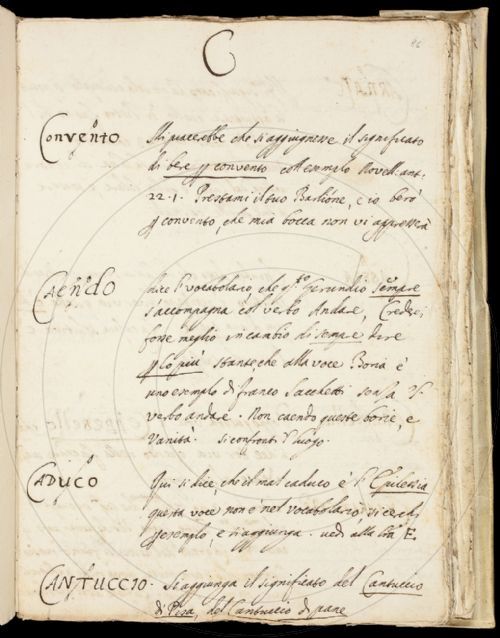 C
Convento Mi piacerebbe che si aggiugnesse il significato
di bere ꝑ convento coll esemplo Novell. ant.
22. 1. Prestami il tuo Barlione, e io berò
ꝑ convento, che mia bocca non vi appresserà
Caendo dice l' vocabolario, che q.sto Gerundio sempre
s'accompagna col verbo Andare, Crederei
forse meglio in cambio di sempre dire
ꝑ lo più stante che alla voce Boria è
uno esemplo di franco Sacchetti senza l'
verbo andare. Non caendo queste borie, e
vanità. si confronti l' luogo.
Caduco Qui si dice, che il mal caduco è l' Epilessia
questa voce non è nel vocabolario, si cerchi
ꝑ esemplo e si aggiunga. vedi alla lra E.
Cantuccio. Si aggiunga il significato del Cantuccio
di Pisa, del Cantuccio di pane